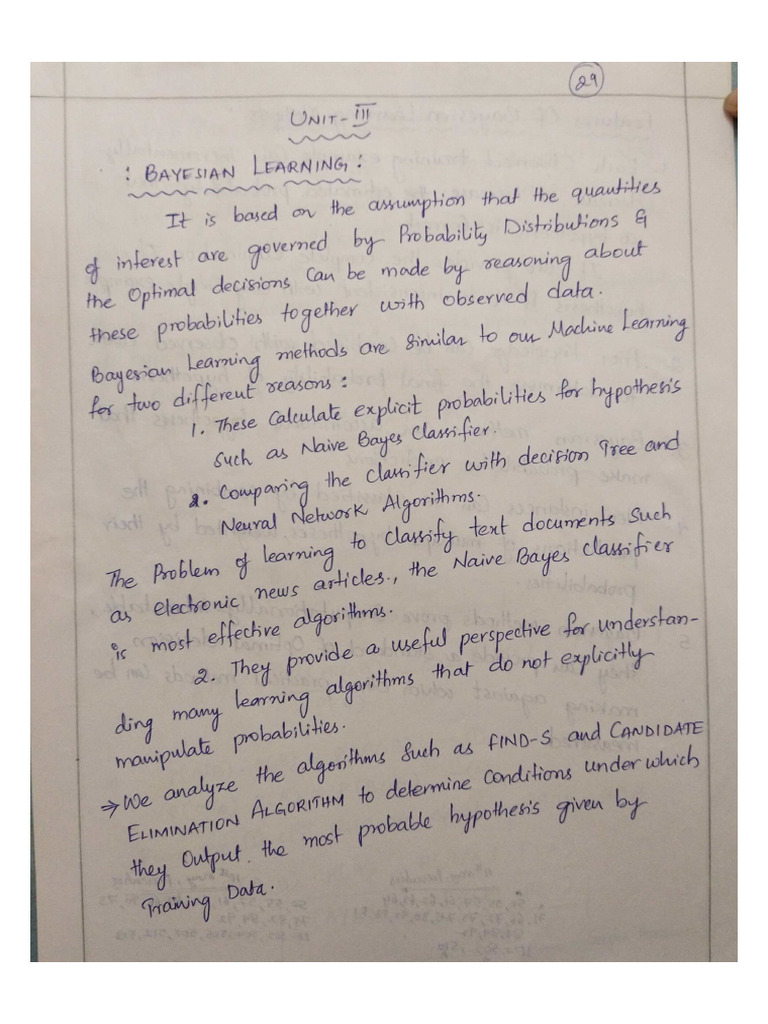 29
UNIT-III
: BAYESIAN LEARNING :
It is based on the assumption that the quantities
of interest are governed by Probability Distributions &
the Optimal decisions can be made by reasoning about
these probabilities together with observed data.
Bayesian Learning methods are similar to our Machine Learning
for two different reasons :
1. These Calculate explicit probabilities for hypothesis
such as Naive Bayes Classifier.
2. Comparing the Classifier with decision Tree and
Neural Network Algorithms.
The Problem of learning to classify text documents such
as electronic news articles., the Naive Bayes Classifier
is most effective algorithms.
2. They provide a useful perspective for understan-
ding many learning algorithms that do not explicitly
manipulate probabilities.
⇒ We analyze the algorithms such as FIND-S and CANDIDATE
ELIMINATION ALGORITHM to determine conditions under which
they Output the most probable hypothesis given by
Training Data.